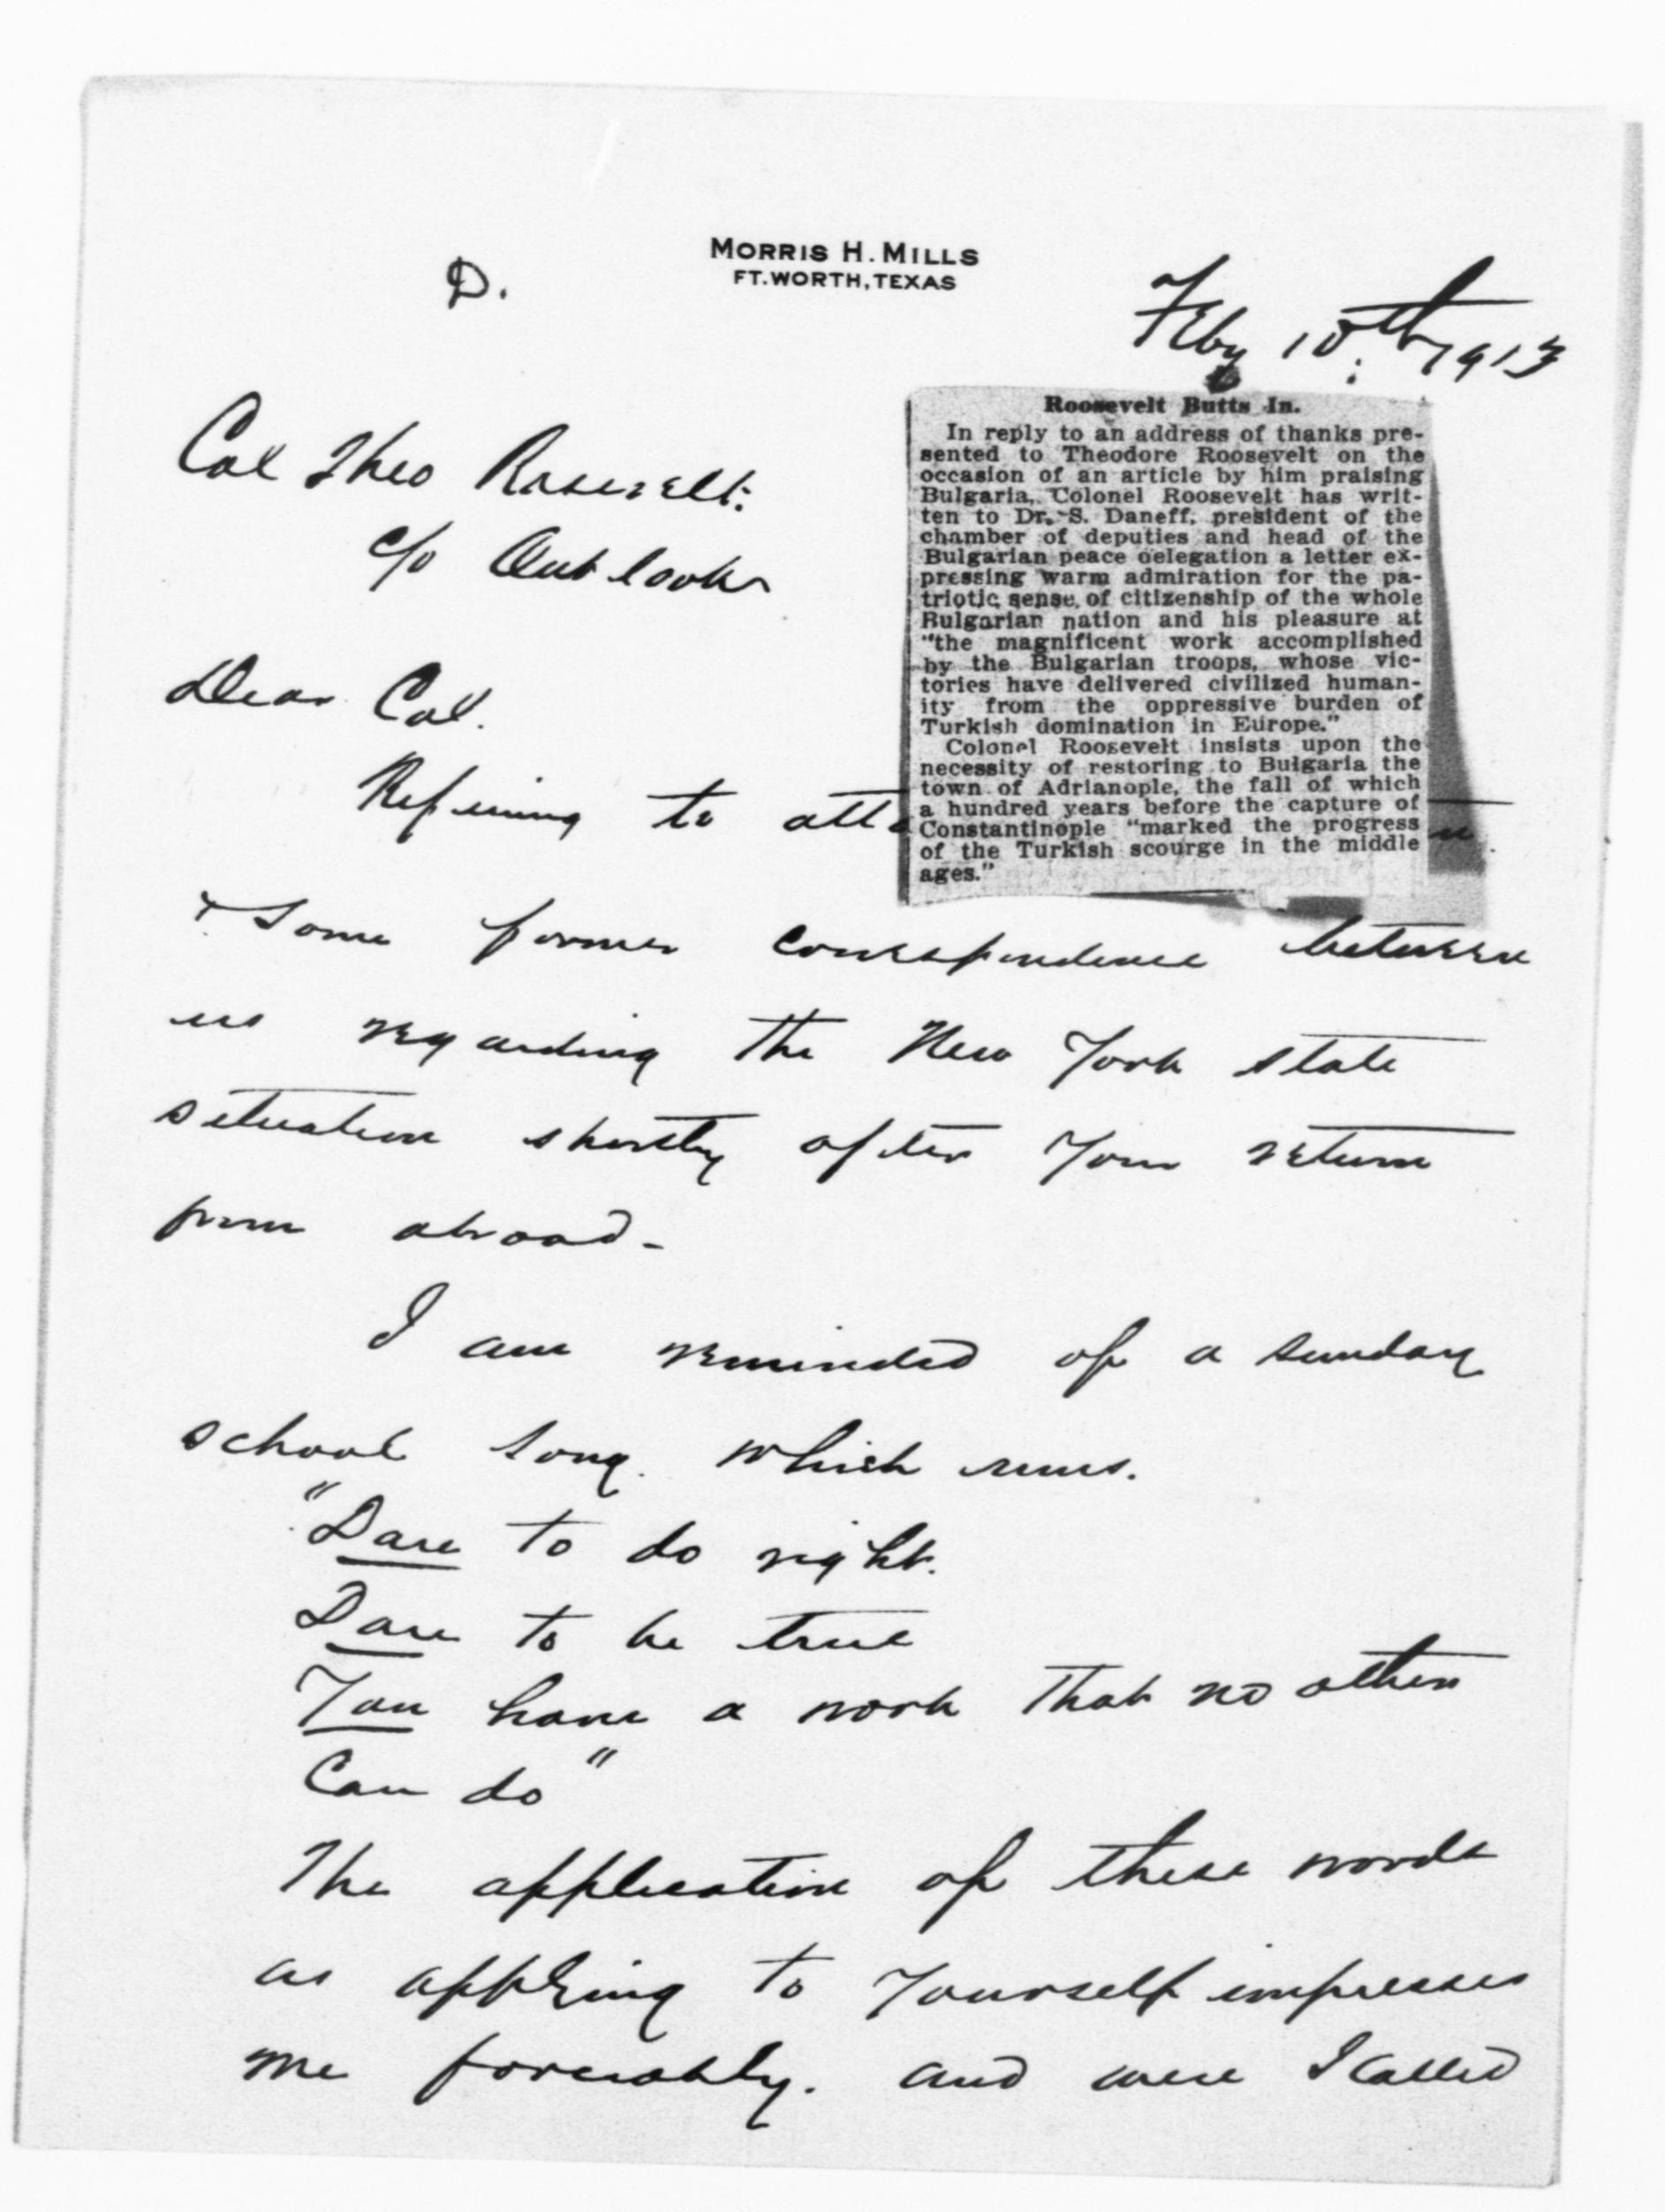 MORRIS H. MILLS
FT. WORTH, TEXAS
D.
Feby 10th 1913
Roosevelt Butts In.
In reply to an address of thanks pre-
sented to Theodore Roosevelt on the
occasion of an article by him praising
Bulgaria, Colonel Roosevelt has writ-
ten to Dr. S. Daneff, president of the
chamber of deputies and head of the
Bulgarian peace delegation a letter ex-
pressing warm admiration for the pa-
triotic sense of citizenship of the whole
Bulgarian nation and his pleasure at
"the magnificent work accomplished
by the Bulgarian troops, whose vic-
tories have delivered civilized human-
ity from the oppressive burden of
Turkish domination in Europe."
Colonel Roosevelt insists upon the
necessity of restoring to Bulgaria the
town of Adrianople, the fall of which
a hundred years before the capture of
Constantinople "marked the progress
of the Turkish scourge in the middle
ages."
Col Theo Roosevelt:
c/o Outlook
Dear Col.
Refering to
& some former correspondence between
us regarding the New York state
situation shortly after your return
from abroad-
I am reminded of a sunday
school song. which runs.
"Dare to do right.
Dare to be true
You have a work that no other
Can do"
The application of these words
as applying to yourself impresses
me forceably. and were I called